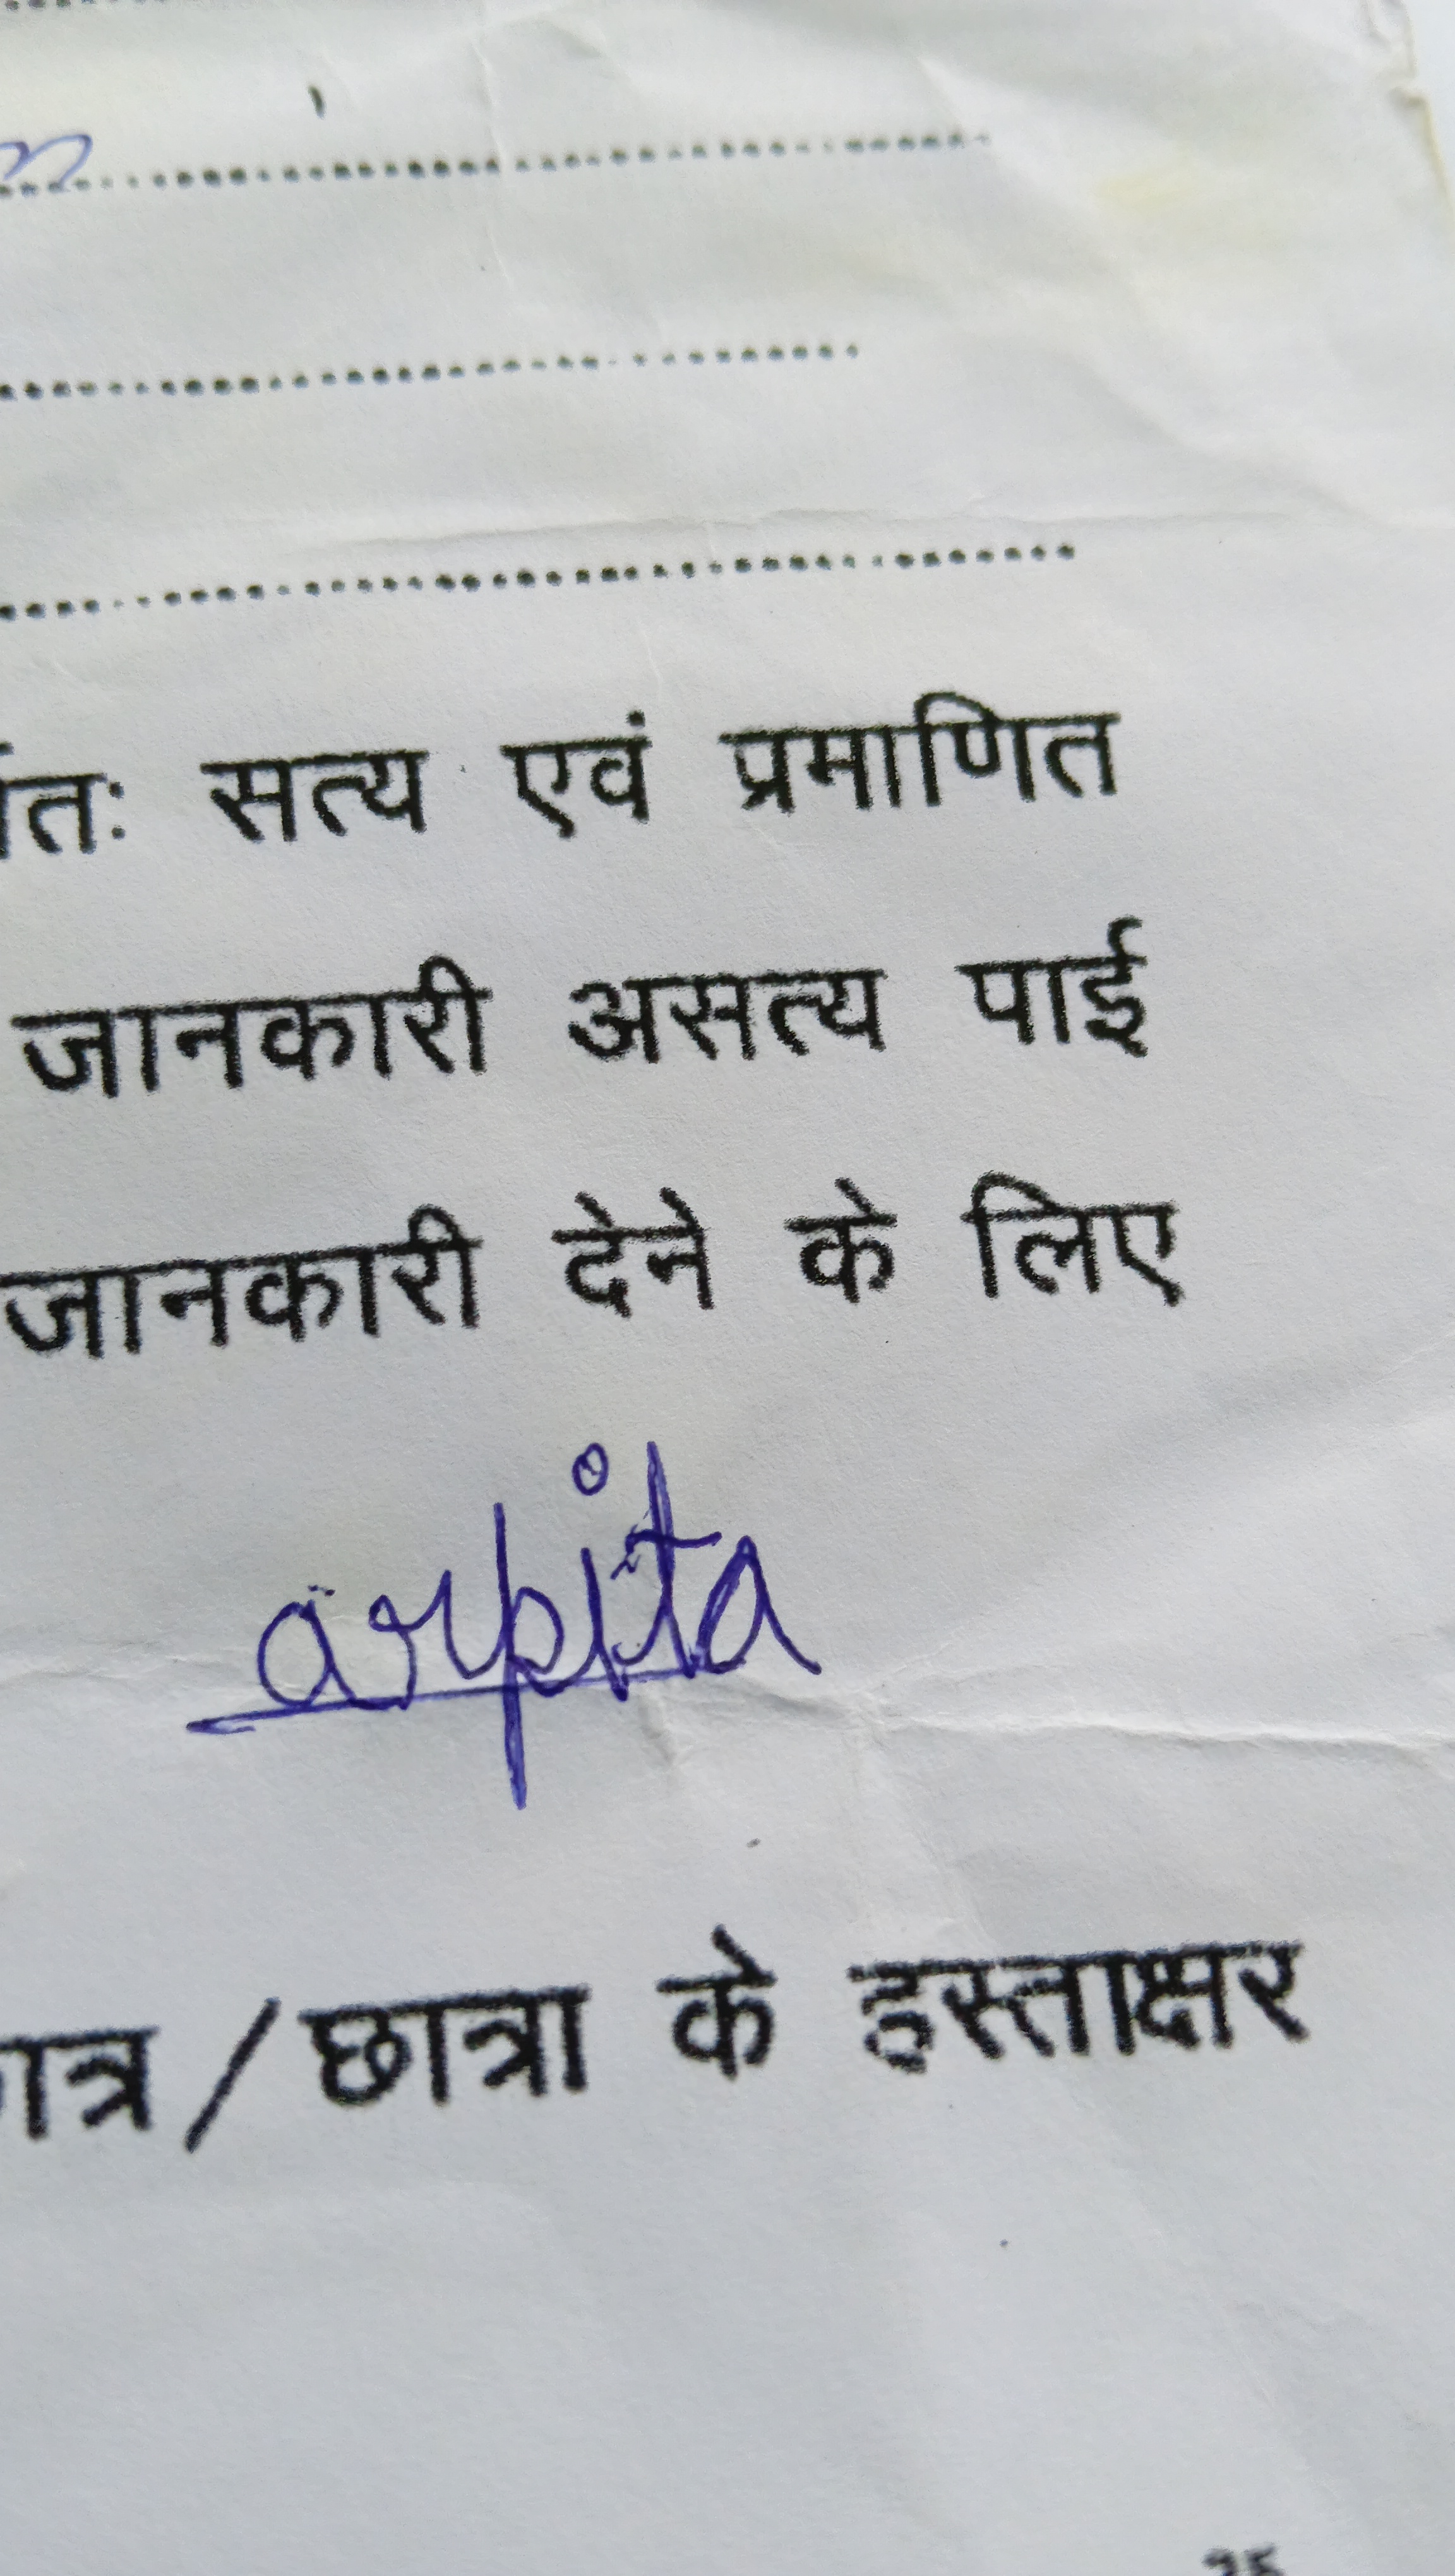 सत्य एवं प्रमाणित
जानकारी असत्य पाई
जानकारी देने के लिए
arpita
/छात्रा के हस्ताक्षर